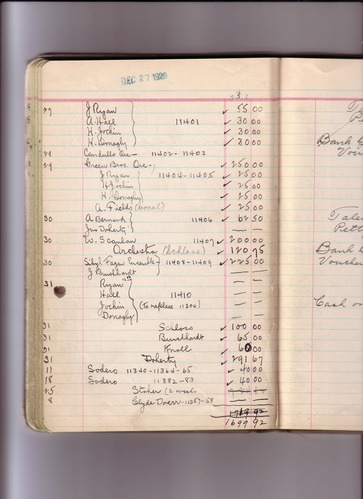 DEC 27 1923
27 J Ryan 55 00
A. Hall 11401 30 00
H. Jockin 30 00
H. Donaghy 30 00
28 Candullo Orc - 11402 - 11403
29 Green Bros. Orc - 250 00
J Ryan 11404 - 1405 25 00
H Jockin 25 00
H. Donaghy 25 00
A. Fields (vocal) 25 00
30 A Bernard 11406 62 50
Jno Doherty
30 W. Scanlan 11407 200 00
Orchestra 120 75
30 Fagan Ensemble - 11408 - 11409 225 00
J Burckhardt
31 Ryan
Hall 11410
Jockin (To replace 11306)
Donaghy
31 100 00
31 Burckhardt 65 00
31 Knoll 60 00
31 Doherty 291 67
11 Sodero 11340 - 11364 - 65 40 00
18 Sodero 11382 - 83 40 00
25 (2 weeks)
8 Clyde Doerr - 11357 - 58
1769 92
1699 92
Bank
Cash on